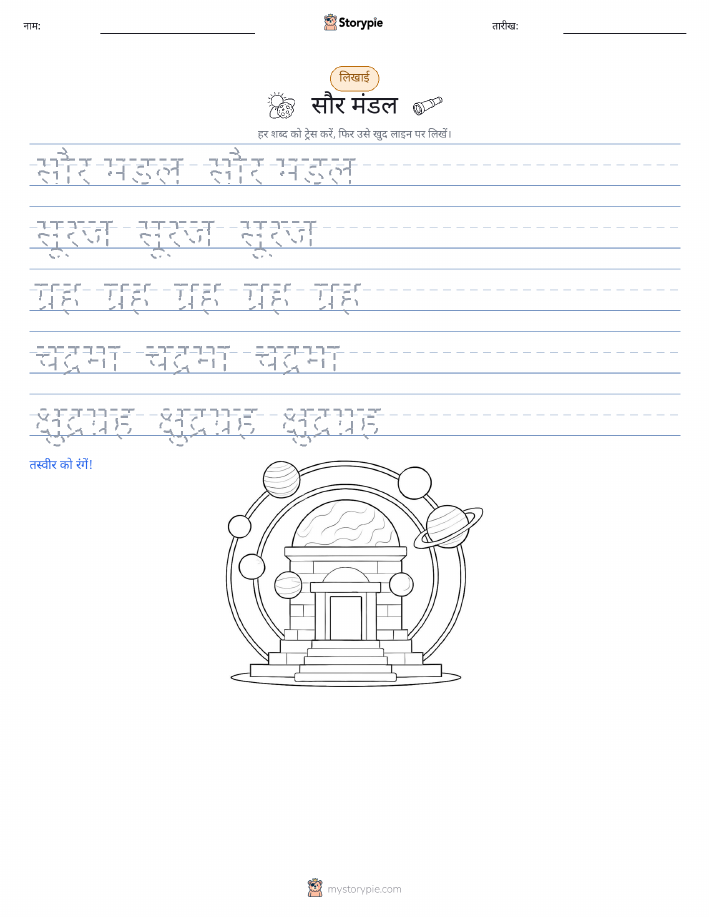 नाम: Storypie तारीख:
लिखाई
सौर मंडल
हर शब्द को ट्रेस करें, फिर उसे खुद लाइन पर लिखें।
सौर मडल सौर मडल
सूरज सूरज सूरज
ग्रह ग्रह ग्रह ग्रह ग्रह
चद्रमा चद्रमा चद्रमा
क्षुद्रग्रह क्षुद्रग्रह क्षुद्रग्रह
तस्वीर को रंगें!
mystorypie.com